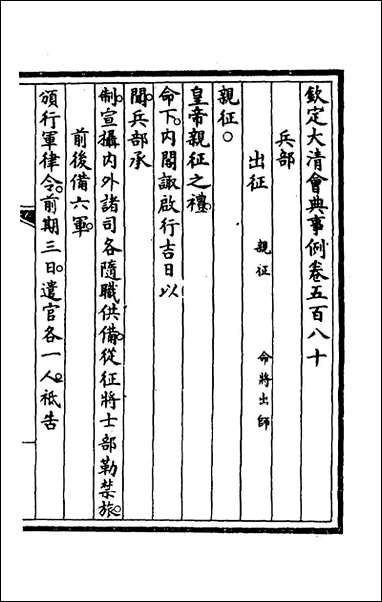 欽定大清會典事例卷五百八十
兵部
出征 親征 命將出師
親征○
皇帝親征之禮。
命下。內閣諏啟行吉日以
聞。兵部承
制。宣攝內外諸司各隨職供備。從征將士部勒禁旅。
前後備六軍。
頒行軍律令。前期三日。遣官各一人。祗告